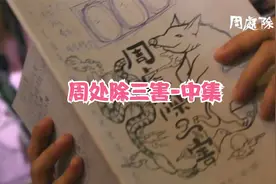 周處除
周处除三害-中集
周處除三害